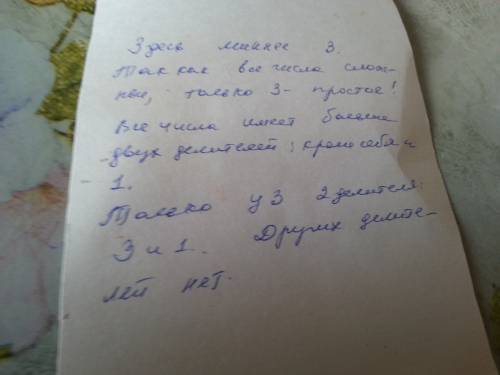 Здесь лишнее 3.
Так как все числа слож-
ные, только 3- простое!
Все числа имеет больше
двух делителей: кроме себя и
1.
Только у 3 2 делителя:
3 и 1. Других делите-
лей нет.